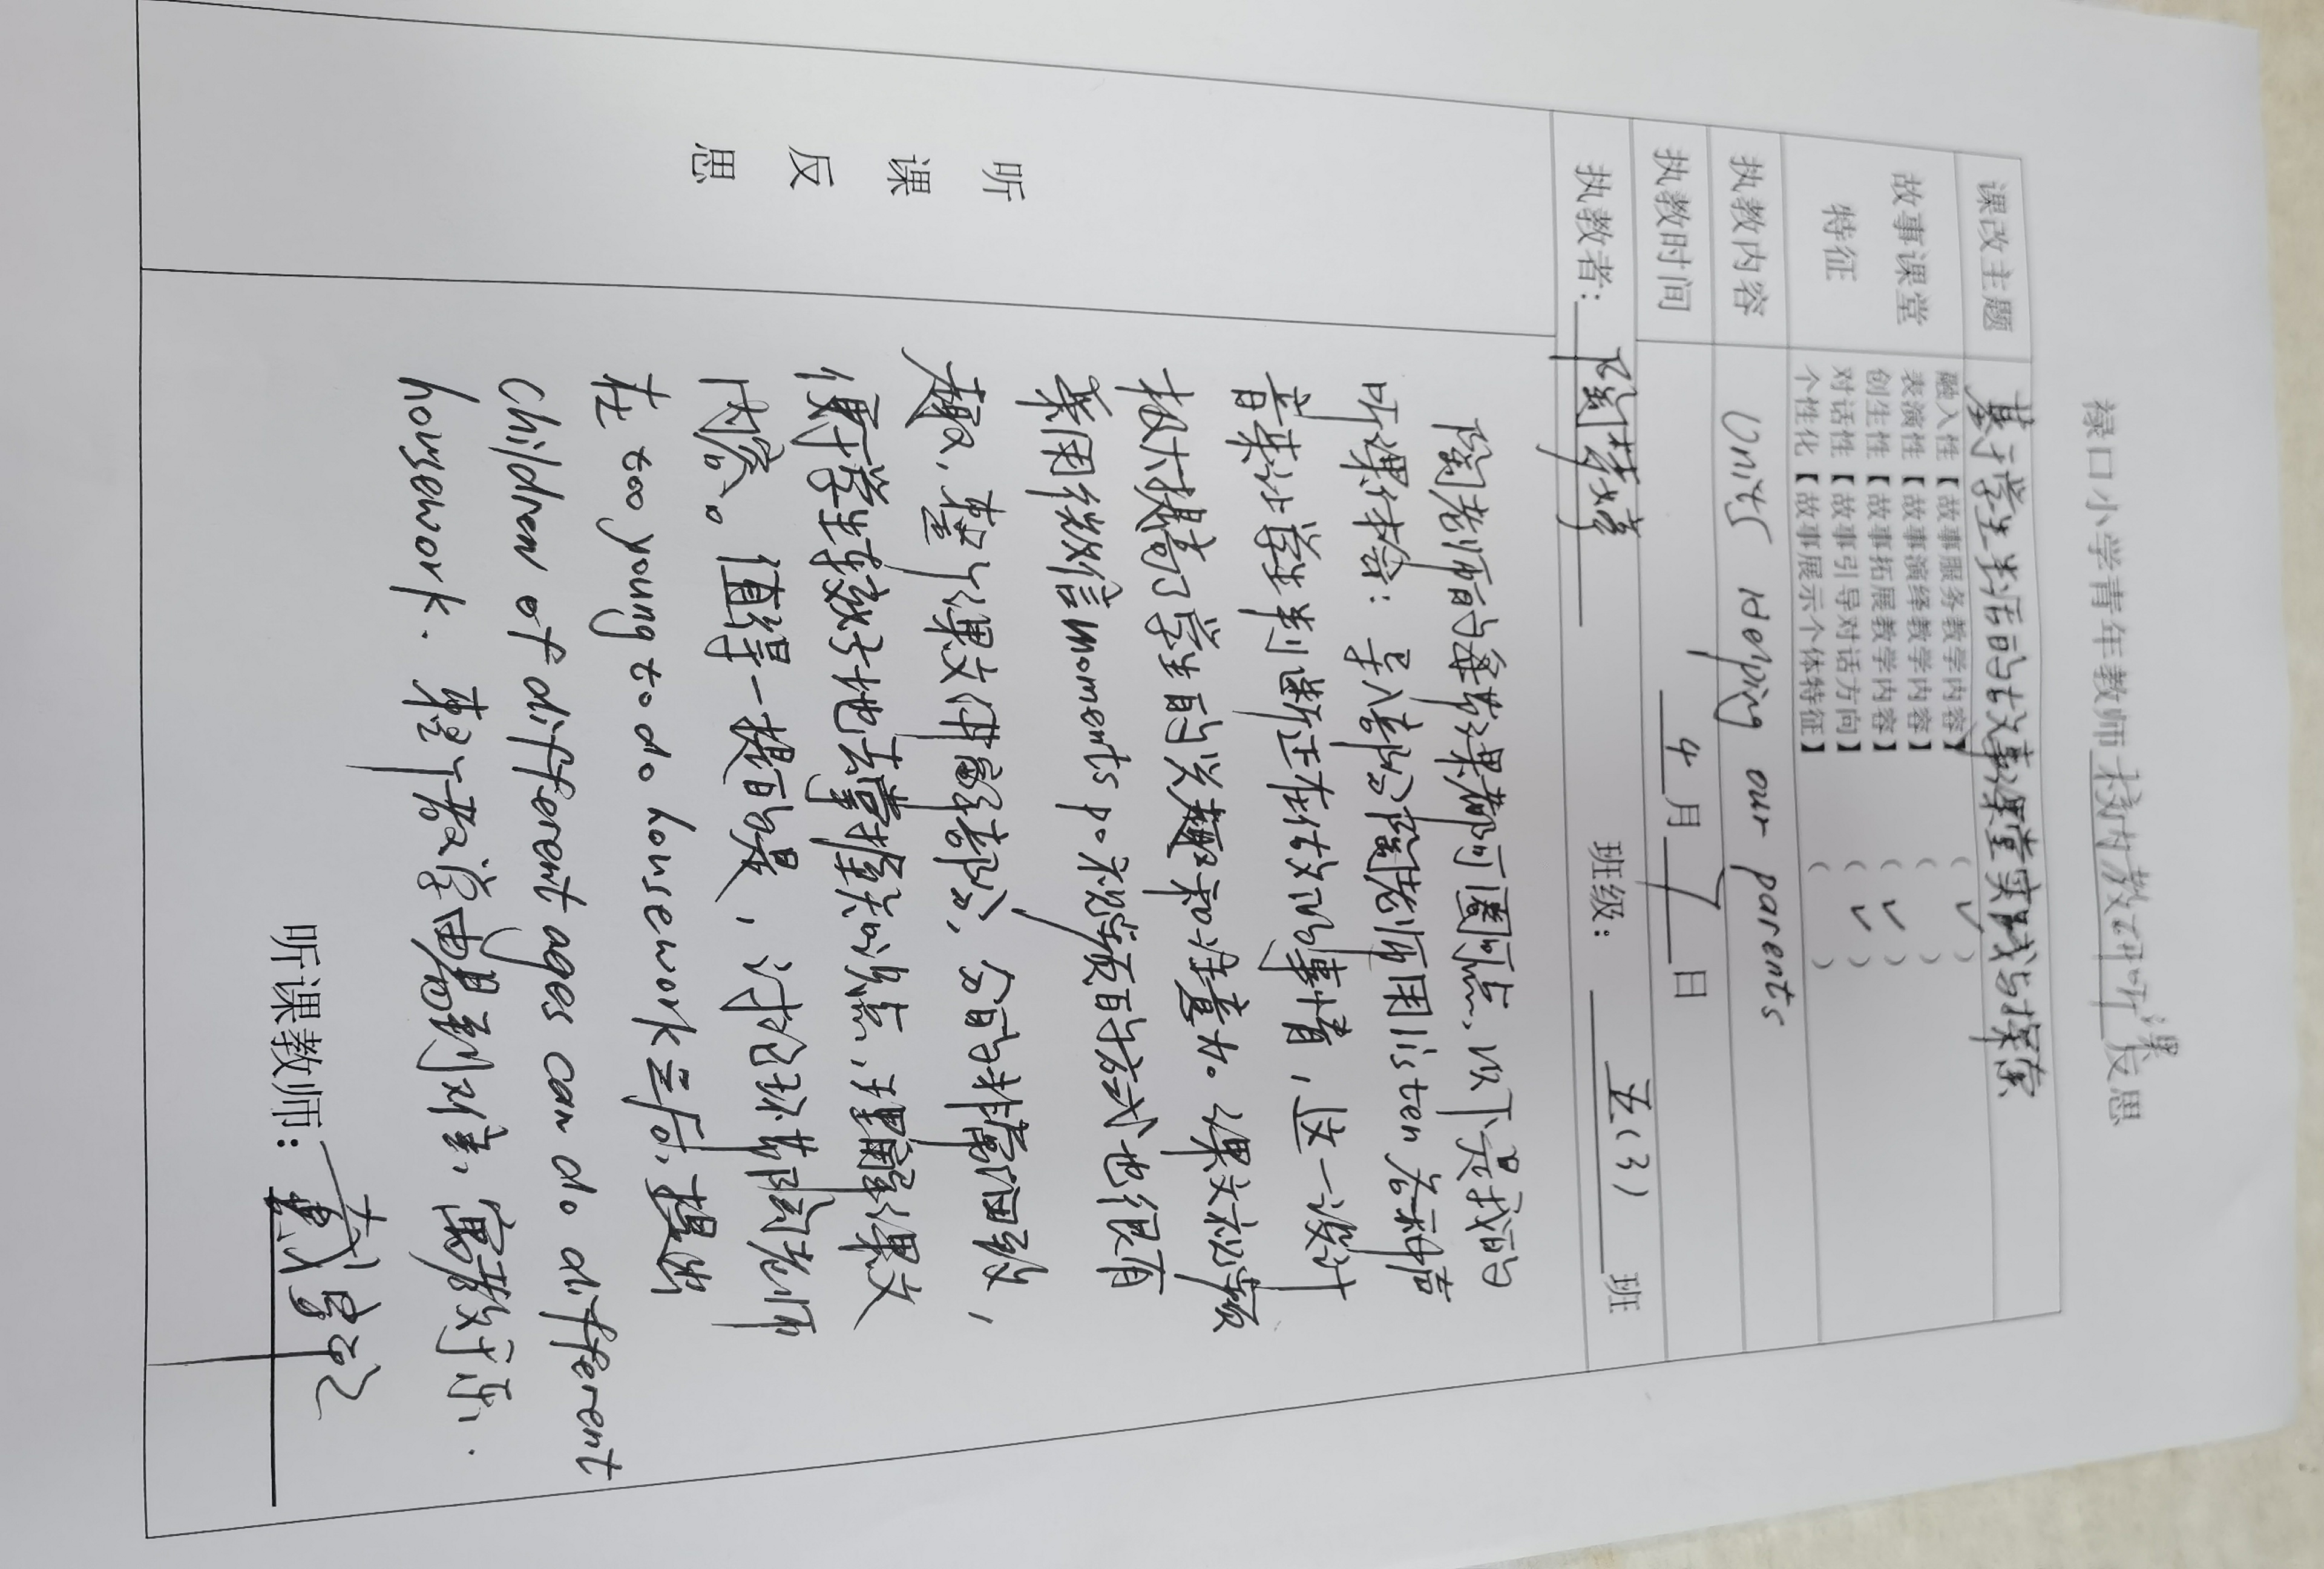 禄口小学青年教师校内教研听课反思
课改主题 基于学生生活的故事课堂实践与探索
故事课堂
特征
融入性【故事服务教学内容】 (✓)
表演性【故事演绎教学内容】 ( )
创生性【故事拓展教学内容】 (✓)
对话性【故事引导对话方向】 (✓)
个性化【故事展示个体特征】 ( )
执教内容 Unit5 Helping our parents
执教时间 4月7日
执教者: 陶梦婷 班级: 五(3)班
听课反思
陶老师的每节课都可圈可点,以下是我的
听课体会: 导入部分陶老师用listen各种声
音来让学生判断正在做的事情,这一设计
极大提高了学生的兴趣和注意力。课文视频
采用微信moments po视频的方式也很有
趣,整个课文讲解部分,分的非常细致,
便于学生较好地去掌握知识点,理解课文
内容。值得一提的是,讨论环节陶老师
在too young to do housework之后,提出
Children of different ages can do different
housework. 整个教学由易到难,寓教于乐.
听课教师: 戴